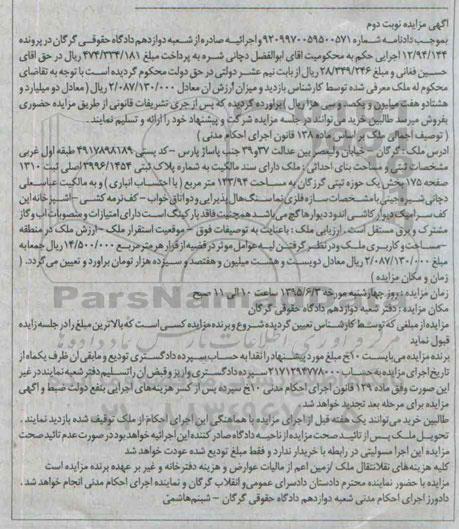 آگهی مزایده نوبت دوم
بموجب دادنامه شماره ۹۲۰۹۹۷۰۰۵۹۵۰۰۵۷۱ و اجرائیه صادره از شعبه دوازدهم دادگاه حقوقی گرگان در پرونده
۱۲/۹۴/۱۴۴ اجرایی حکم به محکومیت آقای ابوالفضل دچانی شره به پرداخت مبلغ ۴۷۴/۳۳۴/۱۸۱ ریال در حق آقای
حسین فغانی و مبلغ ۲۸/۳۴۹/۲۴۶ ریال از بابت نیم عشر دولتی در حق دولت محکوم گردیده است با توجه به تقاضای
محکوم له ملک معرفی شده توسط کارشناس بازدید و میزان ارزش آن معادل ۲/۰۸۷/۱۳۰/۰۰۰ ریال (معادل دو میلیارد و
هشتاد و هفت میلیون و یکصد و سی هزار ریال) برآورده گردیده که پس از جری تشریفات قانونی از طریق مزایده حضوری
بفروش میرسد طالبین خرید می توانند در جلسه مزایده شرکت و پیشنهاد خود را ارائه و تسلیم نمایند.
( توصیف اجمالی ملک بر اساس ماده ۱۳۸ قانون اجرای احکام مدنی )
آدرس ملک : گرگان - خیابان ولیعصر بین عدالت ۳۷ و ۳۹ جنب پاساژ پارس - کد پستی ۴۹۱۷۸۹۸۱۸۹ طبقه اول غربی
مشخصات ثبتی و مساحت بنای احداثی : ملک دارای سند مالکیت به شماره پلاک ثبتی ۳۹۹۶/۱۴۵۴ اصلی ثبت ۱۳۱۰
صفحه ۱۷۵ بخش یک حوزه ثبتی گرگان به مساحت ۱۴۳/۹۴ متر مربع ( با احتساب انباری ) و به مالکیت عباسعلی
دچانی شیر اجینی با مشخصات سازه فلزی نما سنگ هال پذیرایی و دو اتاق خواب - کف نرمه کشی - آشپزخانه این
کف سرامیک دیوار کاشی اندود دیوارها گچ می باشد همچنین فاقد پارکینگ است دارای امتیازات و منصوبات آب و گاز
مشترک و برق مستقل است . ارزیابی ملک : با عنایت به توصیفات فوق - موقعیت استقرار ملک - ارزش ملک در منطقه
- مساحت و کاربری ملک و در نظر گرفتن لیه عوامل موثر در قضیه از قرار هر متر مربع ۱۴/۵۰۰/۰۰۰ ریال جمعا به
مبلغ ۲/۰۸۷/۱۳۰/۰۰۰ ریال معادل دویست و هشت میلیون و هفتصد و سیزده هزار تومان برآورد و تعیین می گردد.(
زمان و مکان مزایده )
زمان مزایده : روز چهارشنبه مورخه ۱۳۹۵/۶/۳ ساعت ۱۰ الی ۱۱ صبح
مکان مزایده : دفتر شعبه دوازدهم دادگاه حقوقی گرگان
مزایده از مبلغی که توسط کارشناس تعیین گردیده شروع و برنده مزایده کسی است که بالاترین مبلغ را در جلسه زایده
قبول نماید
برنده مزایده می بایست ۱۰٪ مبلغ مورد پیشنهاد را نقدا به حساب سپرده دادگستری تودیع و مابقی آن ظرف یکماه از
تاریخ اجرای مزایده به حساب ۲۱۷۱۲۹۴۷۷۸۰۰۰ سپرده دادگستری واریز و قبض آن را تسلیم دفتر شعبه نمایند در غیر
این صورت وفق ماده ۱۲۹ قانون اجرای احکام مدنی ۱۰٪ سپرده پس از کسر هزینه های اجرایی بنفع دولت ضبط و آگهی
مزایده برای مرحله بعد تجدید خواهد شد.
طالبین خرید می توانند یک هفته قبل از اجرای مزایده با هماهنگی این اجرای احکام از ملک توقیف شده بازدید نمایند .
تحویل ملک پس از تائید صحت مزایده از ناحیه دادگاه صادر کننده این اجرائیه خواهد بود در صورت عدم تائید صحت
مزایده این اجرا مسولیتی در رابطه با خریدار ندارد و فقط مبلغ تودیع شده عودت خواهد شد
کلیه هزینه های نقل انتقال ملک از زمین اعم از مالیات عوارض و هزینه دفترخانه و غیر بر عهده برنده مزایده است
مزایده با حضور نماینده محترم دادستان دادسرای عمومی و انقلاب گرگان و نماینده اجرای احکام مدنی انجام خواهد شد .
دادورز اجرای احکام مدنی شعبه دوازدهم دادگاه حقوقی گرگان - شبنم هاشمی